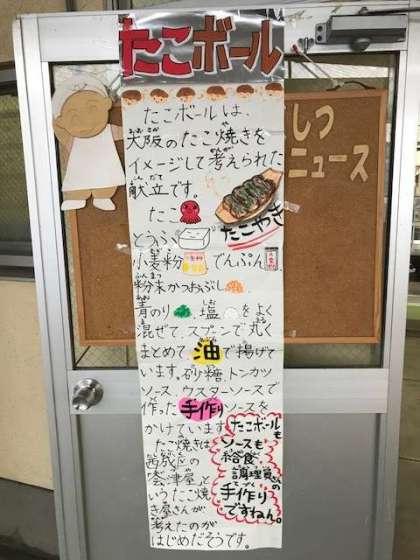 たこボール
しつ
ニュース
たこボールは、
大阪のたこ焼きを
おおさか
イメージして考えられた
かんが
献立です。
こんだて
たこやき
たこ
とうふ
小麦粉 でんぷん
粉末かつおぶし
ふんまつ
青のり 塩 をよく
しお
混ぜて、スプーンで丸く
まとめて、油で揚げて
います。砂糖、トンカツ
ソース、ウスターソースで
作った手作りソースを
かけています。
たこ焼きは
西成区の
「会津屋」と
いうたこ焼
き屋さんが
考えたのが
はじめだそうです。
たこボールも
ソースも
給食
調理員さんの
手作り
ですねん。